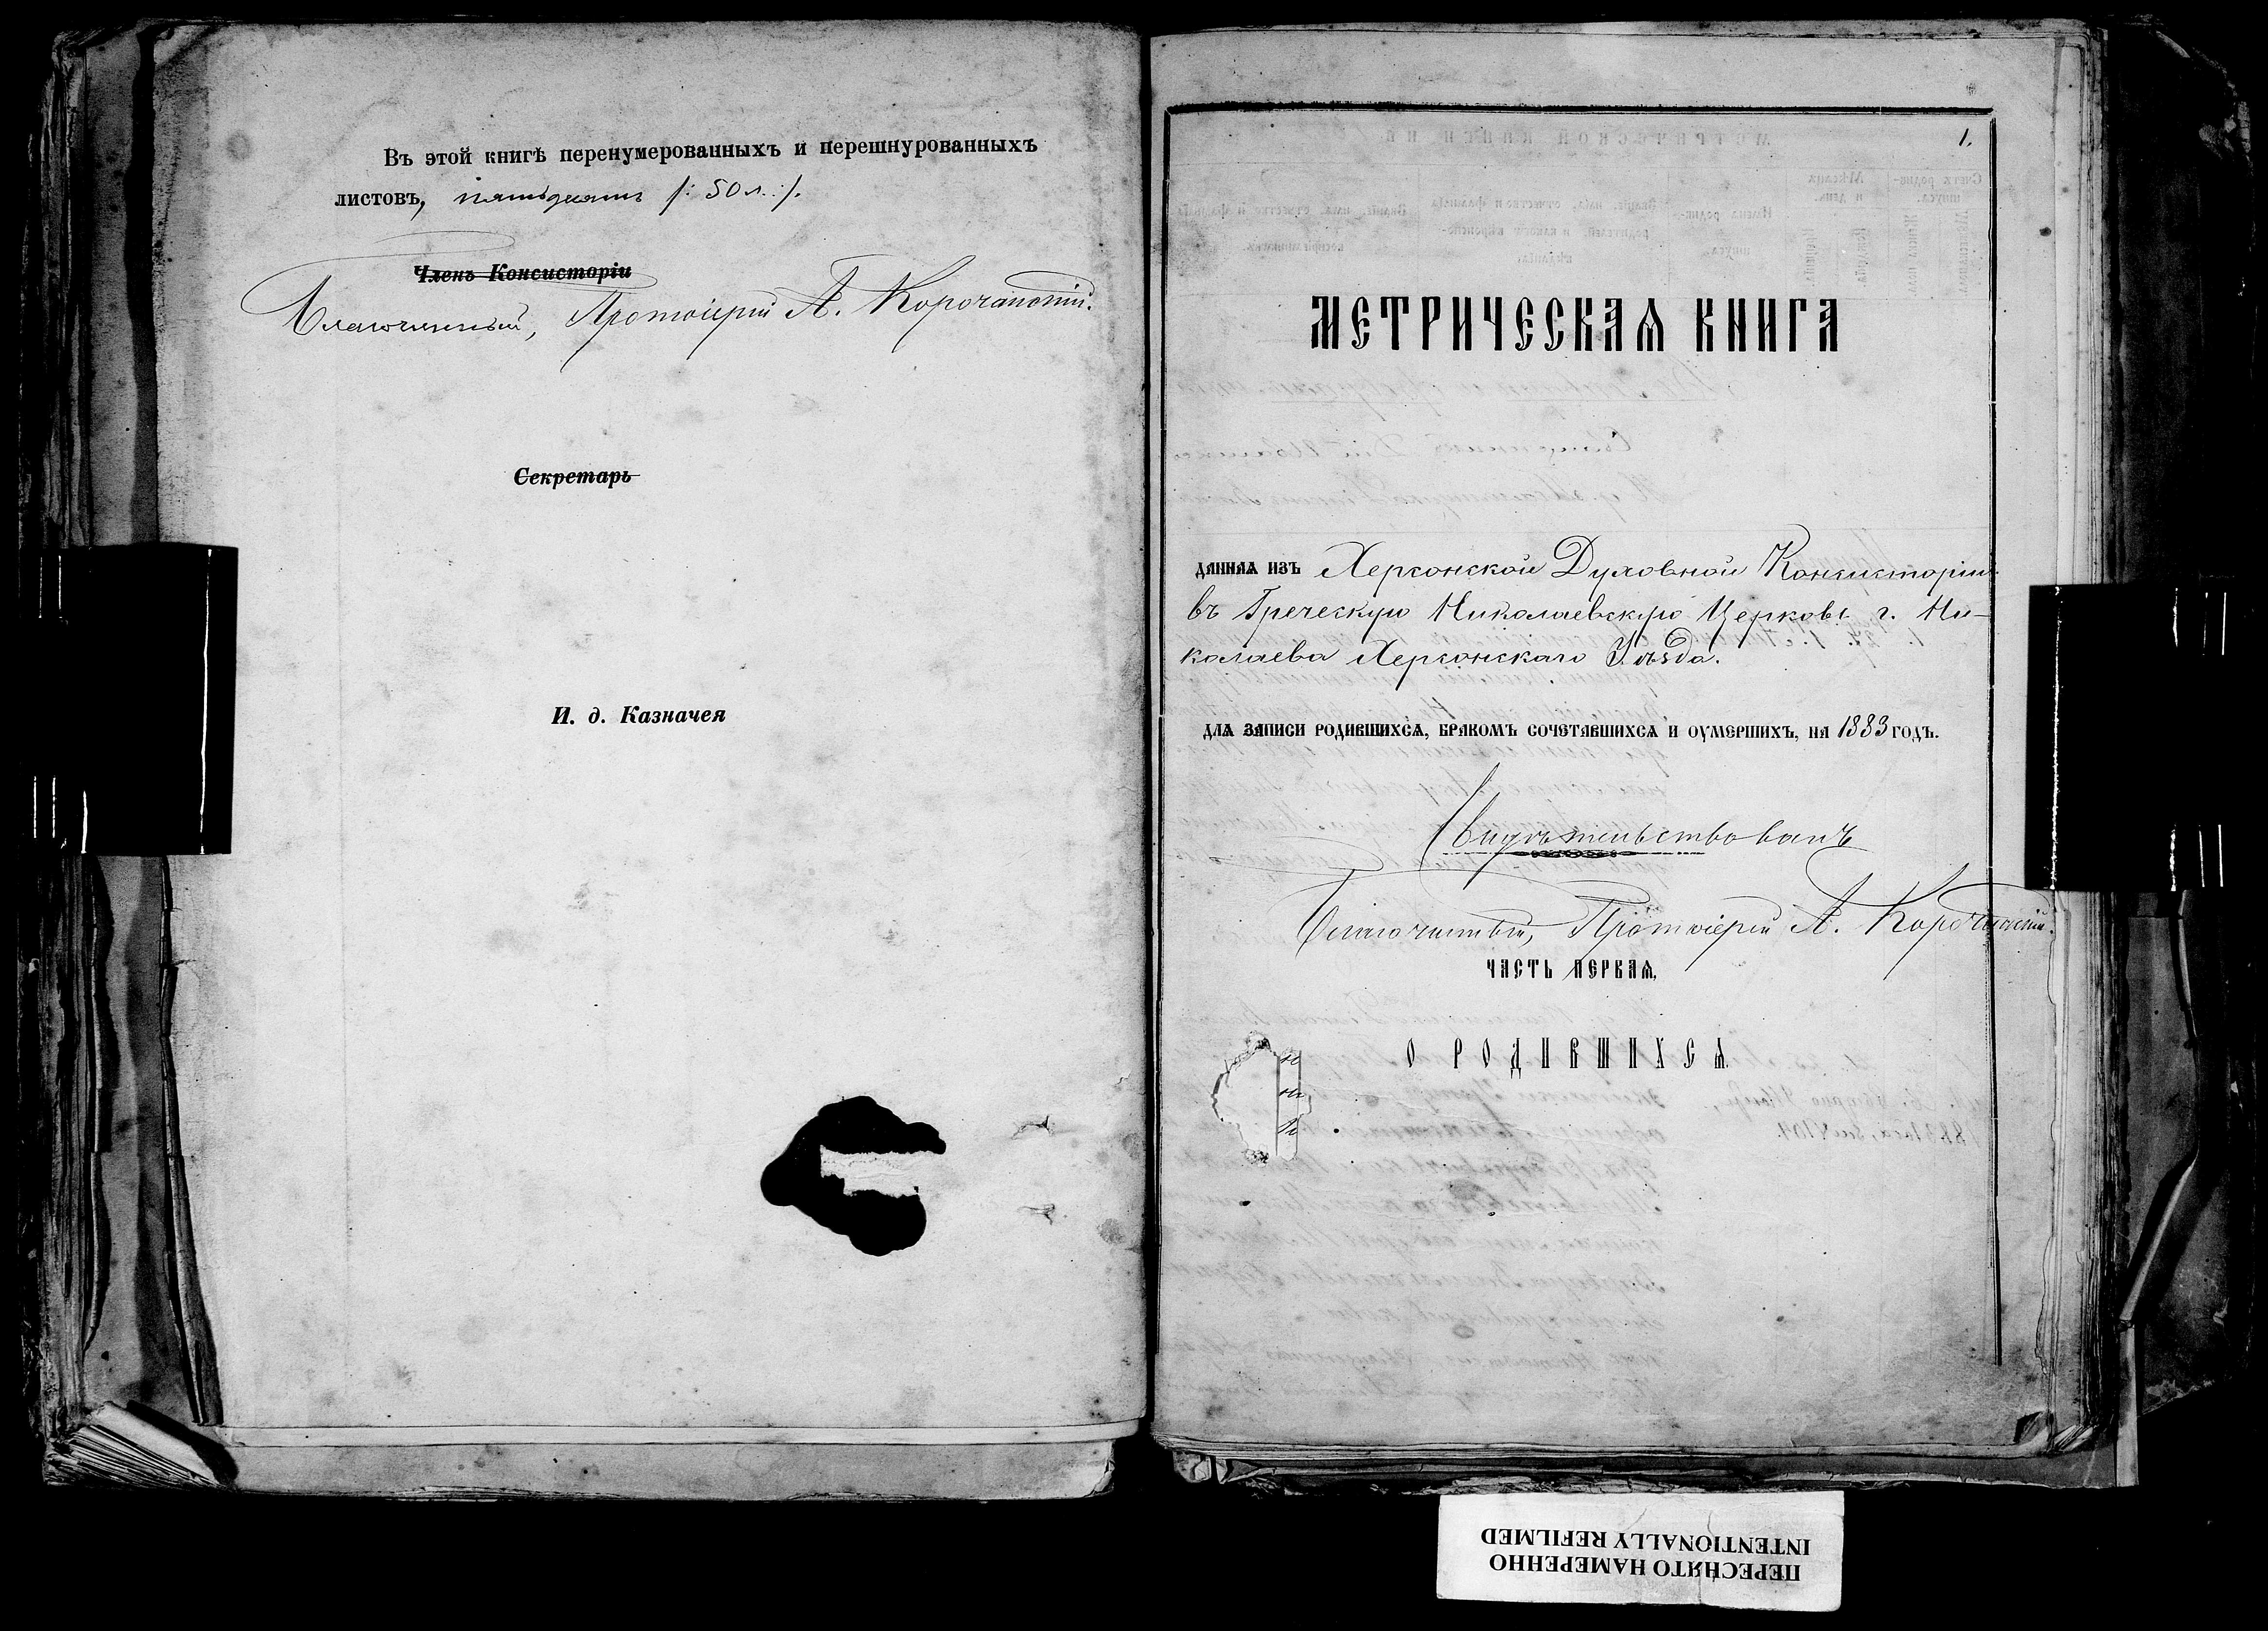 Въ этой книгѣ перенумерованныхъ и перешнурованныхъ
листовъ, пятьдесятъ /: 50 л. :/.
Членъ Консисторіи
Благочинный, Протоіерей А. Корочанскій.
Секретарь
И. д. Казначея
1.
МЕТРИЧЕСКАѦ КНИГА
даннаѧ изъ Херсонской Духовной Консисторіи
въ Греческую Николаевскую Церковь г. Ни-
колаева Херсонскаго Уѣзда.
длѧ записи родившихсѧ, бракомъ сочетавшихсѧ и оумершихъ, на 1883 годъ.
Свидѣтельствовалъ
Благочинный, Протоіерей А. Корочанскій.
ЧАСТЬ ПЕРВАѦ,
О РОДИВШИХСѦ
ПЕРЕСНЯТО НАМЕРЕННО
INTENTIONALLY REFILMED